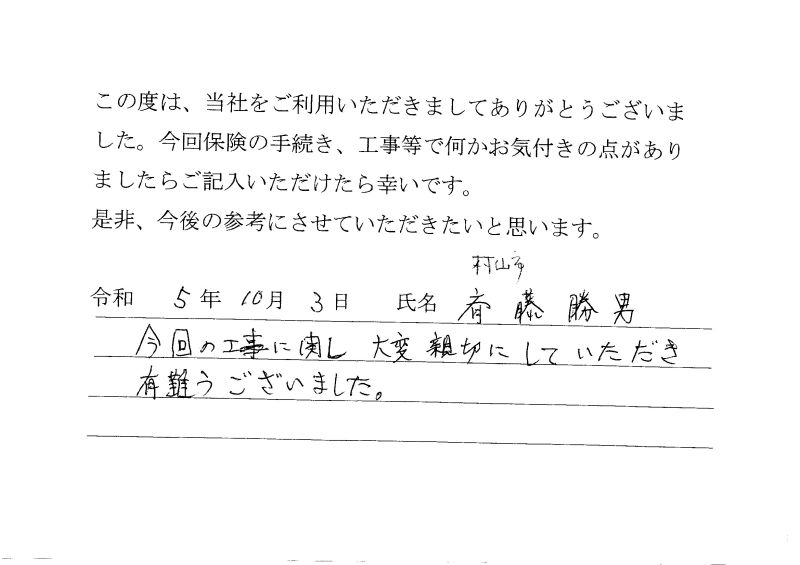 この度は、当社をご利用いただきましてありがとうございま
した。今回保険の手続き、工事等で何かお気付きの点があり
ましたらご記入いただけたら幸いです。
是非、今後の参考にさせていただきたいと思います。
村山市
令和 5年 10月 3日 氏名 斉藤勝男
今回の工事に関し 大変親切にしていただき
有難うございました。